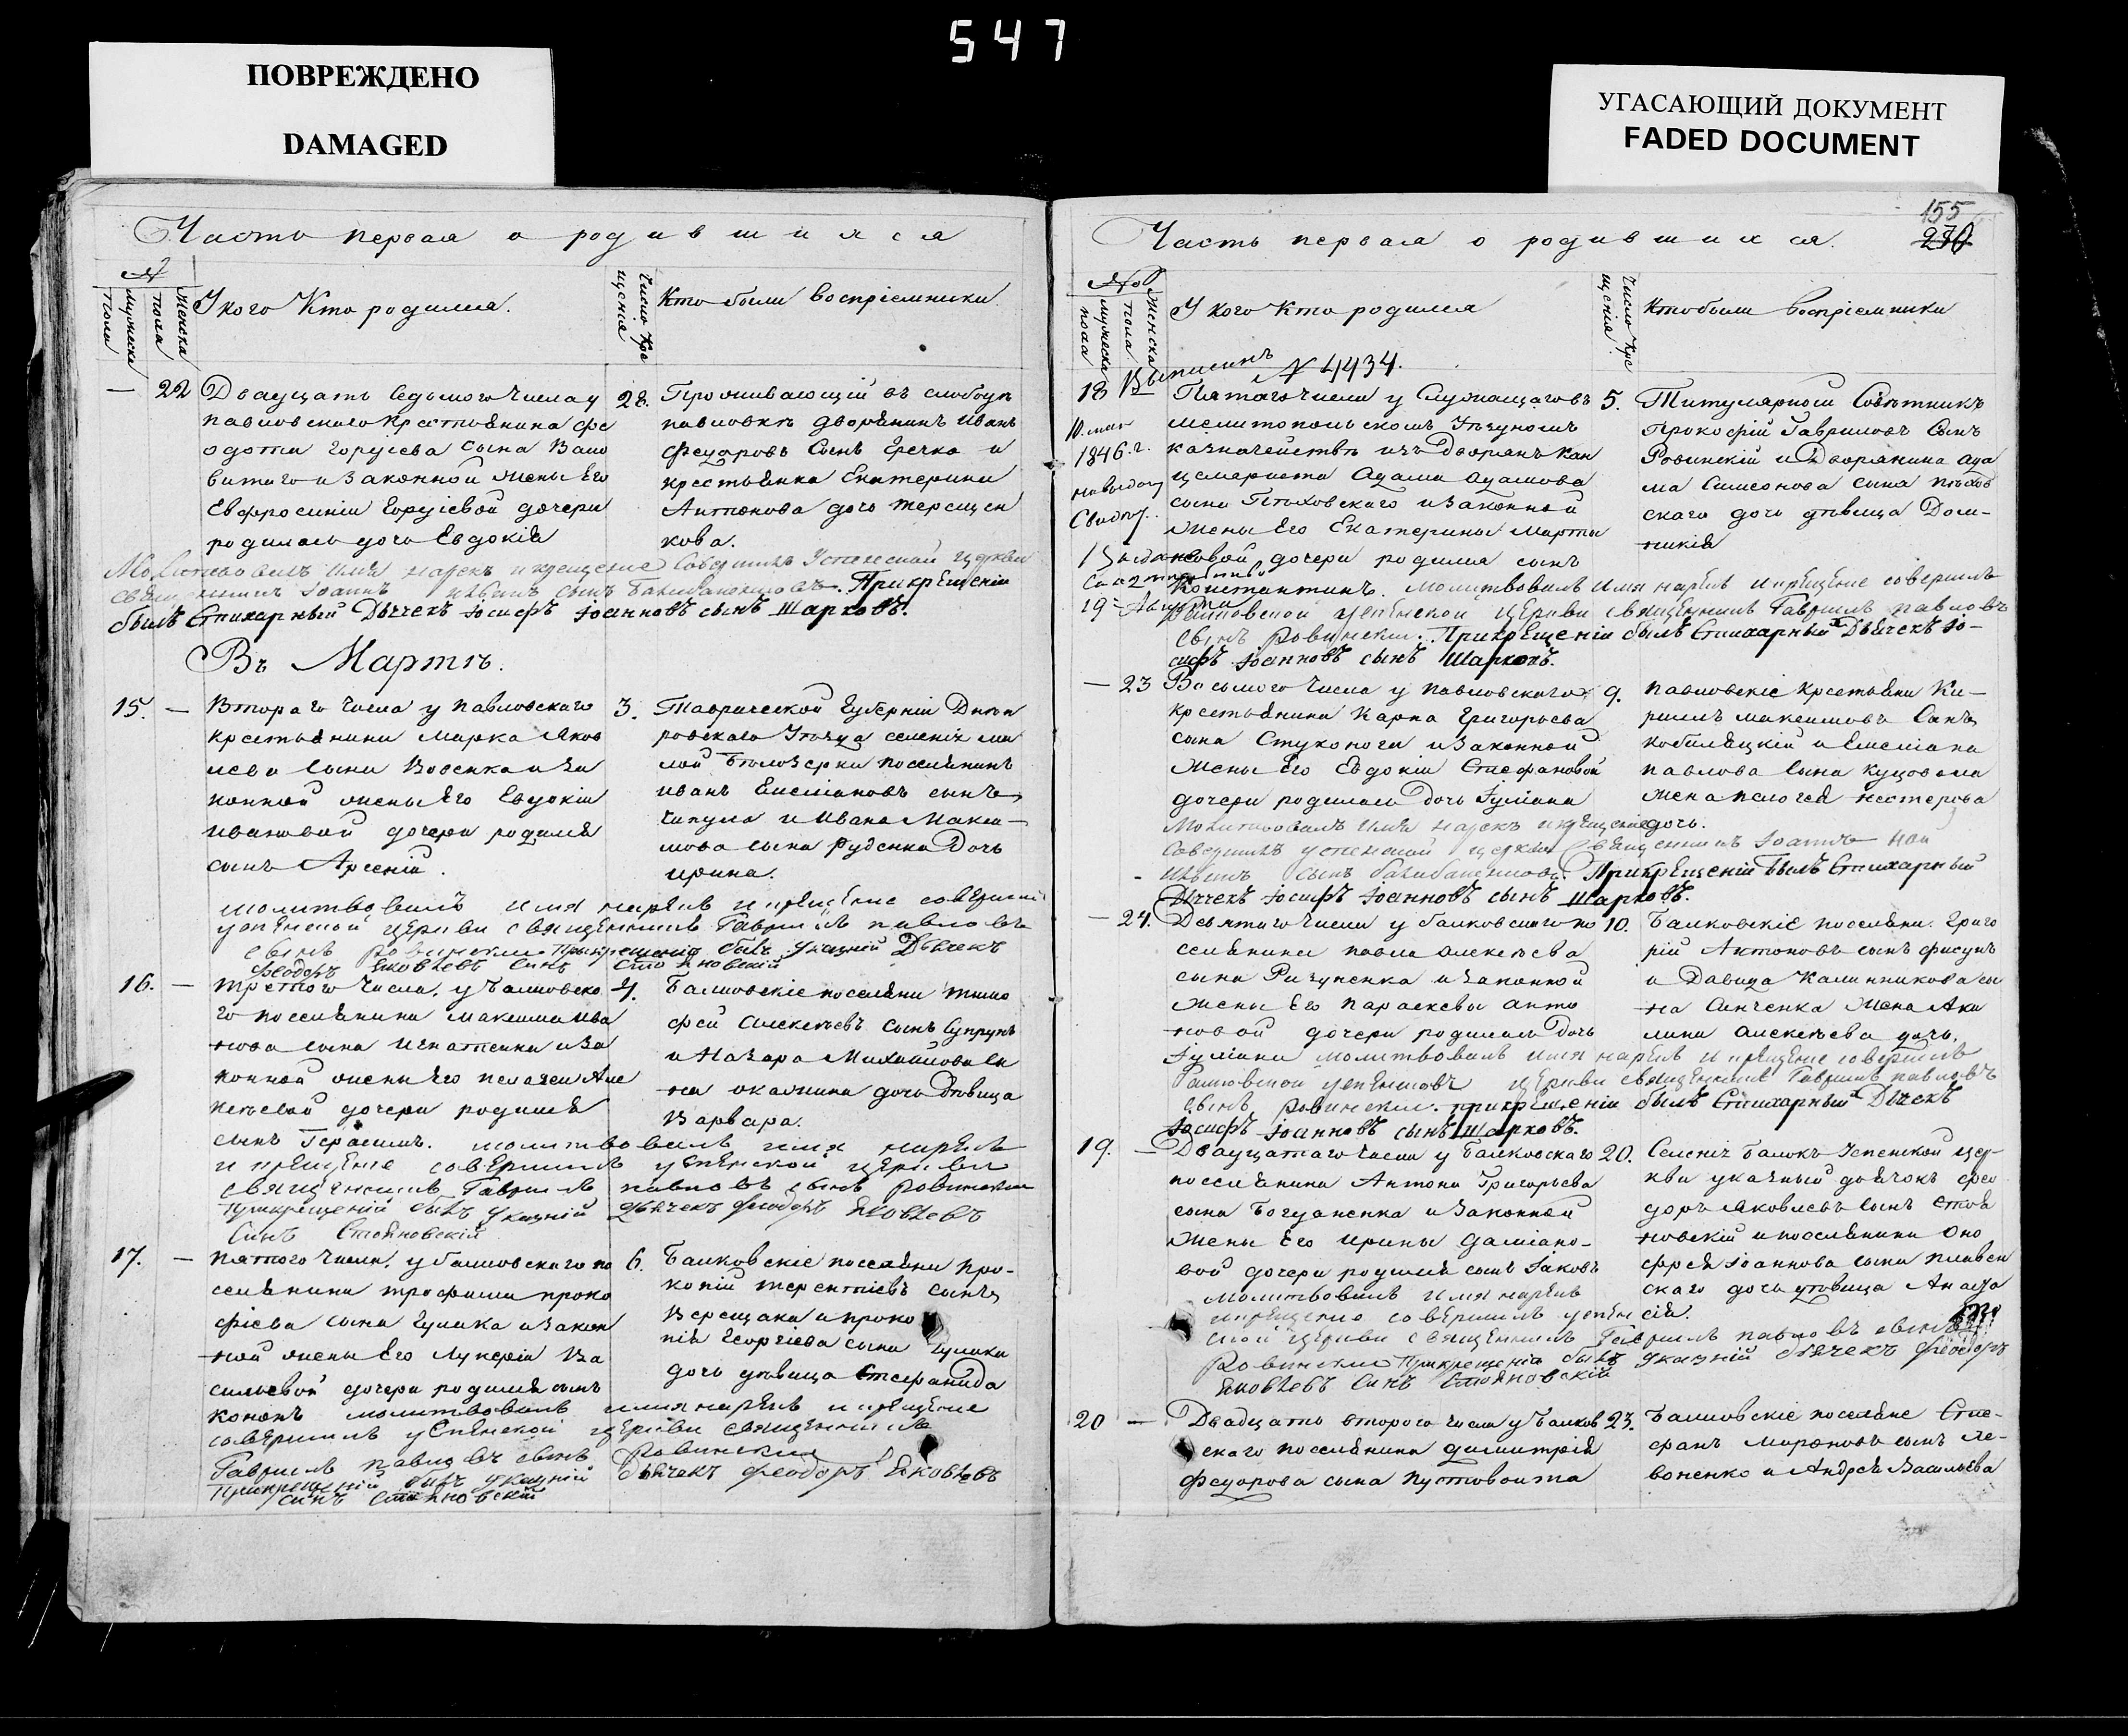 547
ПОВРЕЖДЕНО
DAMAGED
УГАСАЮЩИЙ ДОКУМЕНТ
FADED DOCUMENT
Часть первая о родившихся
№
мужеска пола
женска пола
У кого Кто родился.
Число Крещенія
Кто были воспріемники.
22
Двадцать седьмого числа у
павловского крестьянина Фе
одота
сына
законной жены Его
Евфросиніи дочери
родилась дочь Евдокія
28.
Проживающій въ слободѣ
павловкѣ дворянинъ Иванъ
Федоровъ сынъ Гречка и
крестьянка Екатерина
Антонова дочь Терещен
кова.
Молитвовалъ имя нарекъ и крещеніе совершилъ Успенской церкви
священникъ Іоаннъ сынъ При крещеніи
былъ Стихарный Дьячекъ Іосифъ Іоанновъ сынъ Шарковъ.
Въ Мартѣ.
15.
Втораго числа у павловскаго
крестьянина Марка Яков
лева сына и за
конной жены Его Евдокіи
Ивановой дочери родился
сынъ Арсеній.
3.
Таврической Губерніи Днѣп
ровскаго Уѣзда селенія ма
лой Бѣлозерки поселянинъ
Иванъ Емеліановъ сынъ
Чипула и Ивана Макси-
мова сына Руденка дочь
Ирина.
молитвовалъ имя нарекъ и крещеніе совершилъ
успенской церкви священникъ Гавріилъ павловъ
сынъ Ровинскій При крещеніи былъ Указній Дьячекъ
Феодоръ Яковлевъ Синъ Стояновскій
16.
Третого числа, у Балковско
го поселянина Максима Ива
нова сына Игнатенка и за
конной жены Его пелагеи Але
ксѣевой дочери родился
сынъ Герасимъ. молитвовалъ имя нарекъ
4.
Балковскіе поселяни Тимо
фей Алексѣевъ сынъ Супрунъ
и Назара Михайлова сы
на дочь дѣвица
Варвара.
и крещеніе совершилъ успенской церкви
священникъ Гавріилъ павловъ сынъ Ровинскій
При крещеній былъ Указній Дьячекъ Феодоръ Яковлевъ
Синъ Стояновскій
17.
Пятого числа, у балковскаго по
селянина трофима проко
фіева сына Гулака и закон
ной жены Его Лукеріи Ва
сильевой дочери родился сынъ
Кононъ молитвовалъ имя нарекъ и крещеніе
6.
Балковскіе поселяни Про-
копій Терентіевъ сынъ
Верещака и проко
пія Георгіева сына Гулака
дочь дѣвица Стефанида
совершилъ успенской церкви священникъ
Гавріилъ павловъ сынъ Ровинскій
При крещеній былъ Указній Дьячекъ Феодоръ Яковлевъ
Синъ Стояновскій
155
Часть первая о родившихся.
№
мужеска пола
женска пола
У кого Кто родился
Число Крещенія
Кто были воспріемники
№ 4434.
18
10. мая
1846. г.
Пятаго числа у Служащаго въ
мелитопольскомъ Уѣздномъ
казначействѣ изъ Дворянъ Кан
целариста Адама Адамова
сына Пѣховского и законной
жены Его Екатерины Марты
новой дочери родился сынъ
Константинъ. молитвовалъ имя нарекъ и крещеніе совершилъ
5.
Титулярный Совѣтникъ
Прокофій Гавриловъ Сынъ
Ровинскій и Дворянина Ада
ма Симеонова сына Пѣхов
скаго дочь дѣвица Дом-
никія
успенской церкви священникъ Гавріилъ павловъ
сынъ Ровинскій. При крещеніи былъ Стихарный Дьячекъ Іо-
сифъ Іоанновъ сынъ Шарковъ.
23
Восьмого числа у павловскаго
крестьянина Карпа Григорьева
сына Стуконоги и законной
жены Его Евдокіи Стефановой
дочери родилась дочь Іуліана
9.
павловскіе крестьяни Ки-
рилъ Максимовъ Сынъ
Кобиляцкій и Емеліана
павлова сына Куцовола
жена пелогея Нестерова
дочь.
Молитвовалъ имя нарекъ и крещеніе
совершилъ успенской церкви священникъ Іоаннъ
сынъ При крещеніи былъ Стихарный
Дьячекъ Іосифъ Іоанновъ сынъ Шарковъ.
24.
Девятого числа у балковскаго по
селянина павла Алексѣева
сына и законной
жены Его параскевы Анто
новой дочери родилась дочь
Іуліана молитвовалъ имя нарекъ и крещеніе совершилъ
10.
Балковскіе поселяни. Григо
рій Антоновъ сынъ Фисунъ
и Давида Калинникова сы
на Синченка жена Аки
лина Алексѣева дочь.
церкви священникъ Гавріилъ павловъ
сынъ Ровинскій. При крещеніи былъ Стихарный Дьячекъ
Іосифъ Іоанновъ сынъ Шарковъ.
19.
Двадцатаго числа у Балковскаго
поселянина Антона Григорьева
сына Богданенка и Законной
жены Его Ирины Даміано-
вой дочери родился сынъ Іаковъ
20.
Селенія Балокъ Успенской цер-
кви указный дьячокъ Фео
доръ Яковлевъ сынъ Стоя
новскій и поселянина Оно
фрея Іоаннова сына
скаго дочь дѣвица Анаста
сія.
Молитвовалъ имя нарекъ
и крещеніе совершилъ успен
ской церкви священникъ Гавріилъ павловъ сынъ
Ровинскій При крещеніи былъ Указній дьячекъ Феодоръ
Яковлевъ Синъ Стояновскій
20
Двадцать второго числа у Балков
скаго поселянина Димитрія
Федорова сына Пустовойта
23.
Балковскіе поселяне Сте-
фанъ Мироновъ сынъ Ле-
воненко и Андрея Васильева